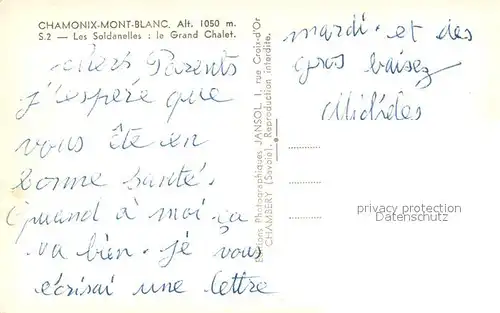 CHAMONIX-MONT-BLANC. Alt. 1050 m.
S.2 — Les Soldanelles : le Grand Chalet.
chers Parents
j'esperé que
vous ête en
bonne santé.
Quand à moi ça
va bien. je vous
écrisai une lettre
mardi. et des
gros baisez
Editions Photographiques JANSOL, 1, rue Croix-d'Or
CHAMBERY (Savoie). Reproduction interdite.
privacy protection
Datenschutz